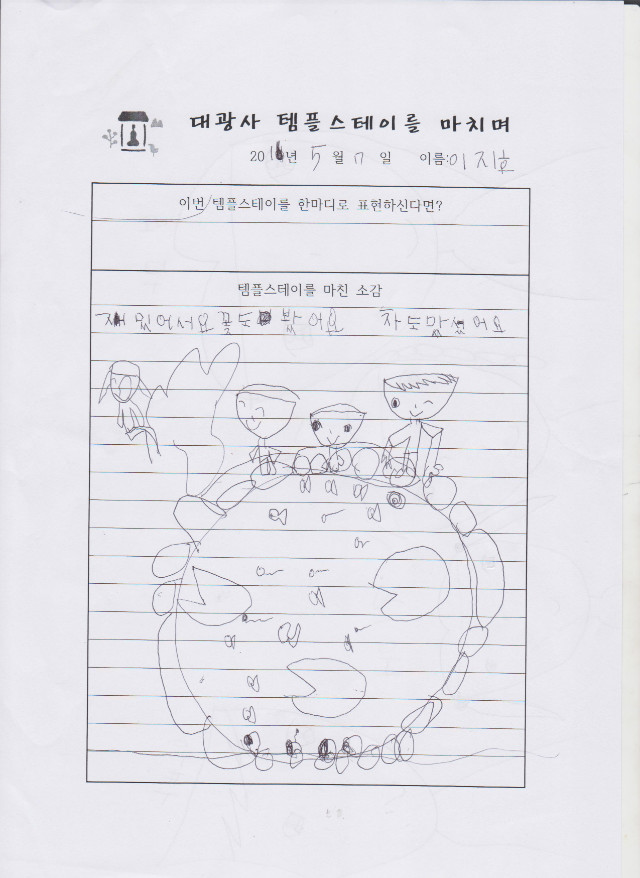 대광사 템플스테이를 마치며
2016년 5월 7일 이름:이지호
이번 템플스테이를 한마디로 표현하신다면?
템플스테이를 마친 소감
재밌어서요 꽃도 봤어요 차도 맜있어요